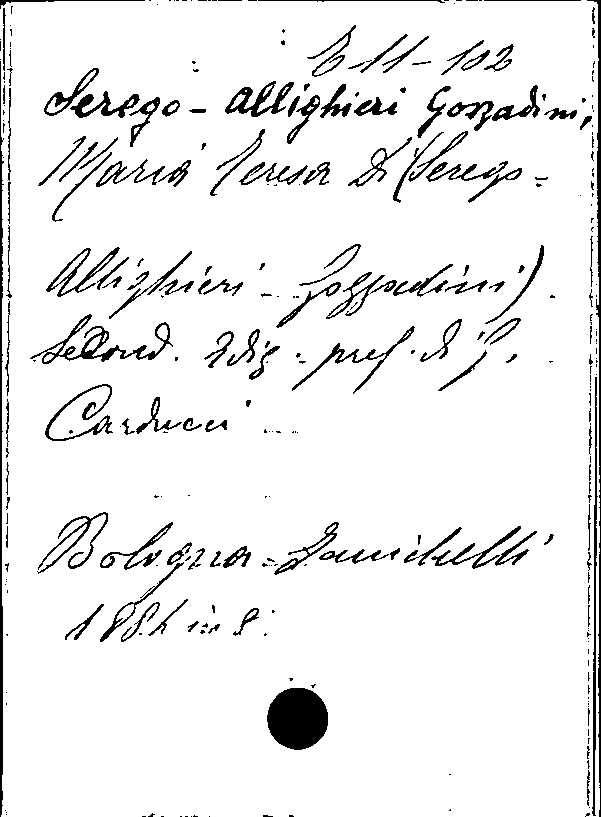 E 11-102
Serego-Allighieri Gozzadini,
Maria Teresa Di (Serego-
Allighieri - Gozzadini)
Second. Ediz. pref. di G.
Carducci
Bologna - Zanichelli
1884 in 8.